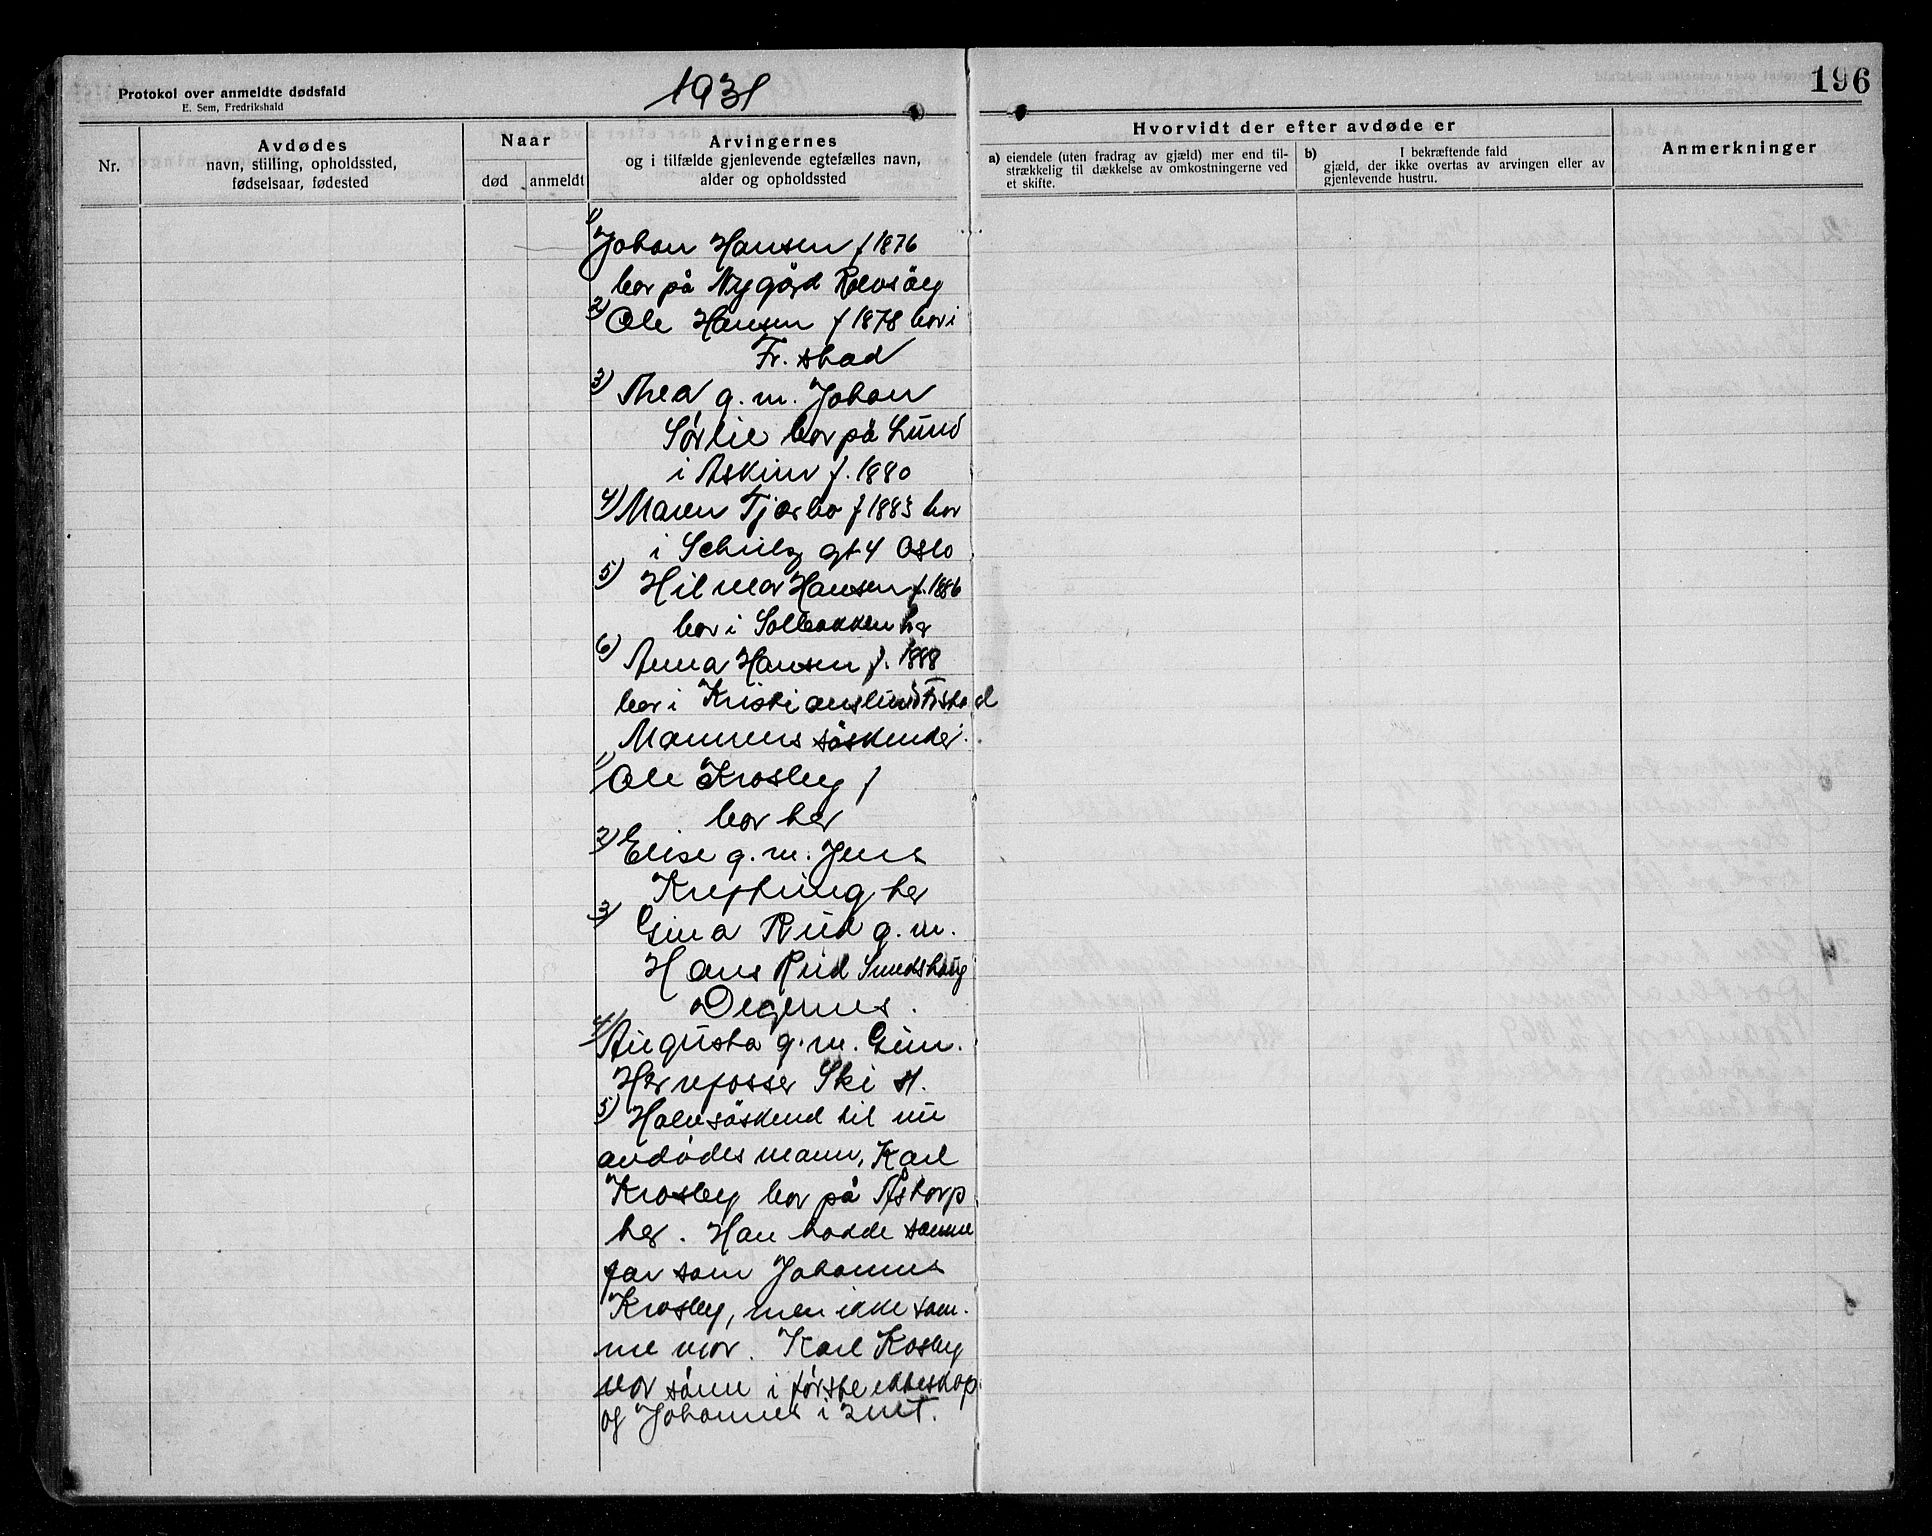 Protokol over anmeldte dødsfald
E. Sem, Fredrikshald
1931
196
Nr.
Avdødes
navn, stilling, opholdssted,
fødselsaar, fødested
Naar
død
anmeldt
Arvingernes
og i tilfælde gjenlevende egtefælles navn,
alder og opholdssted
Hvorvidt der efter avdøde er
a) eiendele (uten fradrag av gjæld) mer end til-
strækkelig til dækkelse av omkostningerne ved
et skifte.
b) I bekræftende fald
gjæld, der ikke overtas av arvingen eller av
gjenlevende hustru.
Anmerkninger
1) Johan Hansen f 1876
bor på Nygård Rolvsöy
2) Ole Hansen f 1878 bor i
Fr. stad
3) Thea g. m. Johan
Sørlie bor på Lund
i Askim f. 1880
4) Maren Tjærbo f 1883 bor
i Schultz gt 4 Oslo
5) Hilmar Hansen f. 1886
bor i Solbakken her
6) Anna Hansen f. 1888
bor i Kristianslund Frstad
Mannens söskender.
1) Ole Krosby f
bor her
2) Elise g. m. Jens
her
3) Gina Rud g. m.
Hans Rud
Degernes.
4) Augusta g. m. Gun.
Ski st.
5) Halvsöskend til nu
avdødes mann, Karl
Krosby bor på Åstorp
her. Han hadde samme
far som Johannes
Krosby, men ikke sam-
me mor. Karl Kosby
var sönn i første ekteskap
og Johannes i 2net.